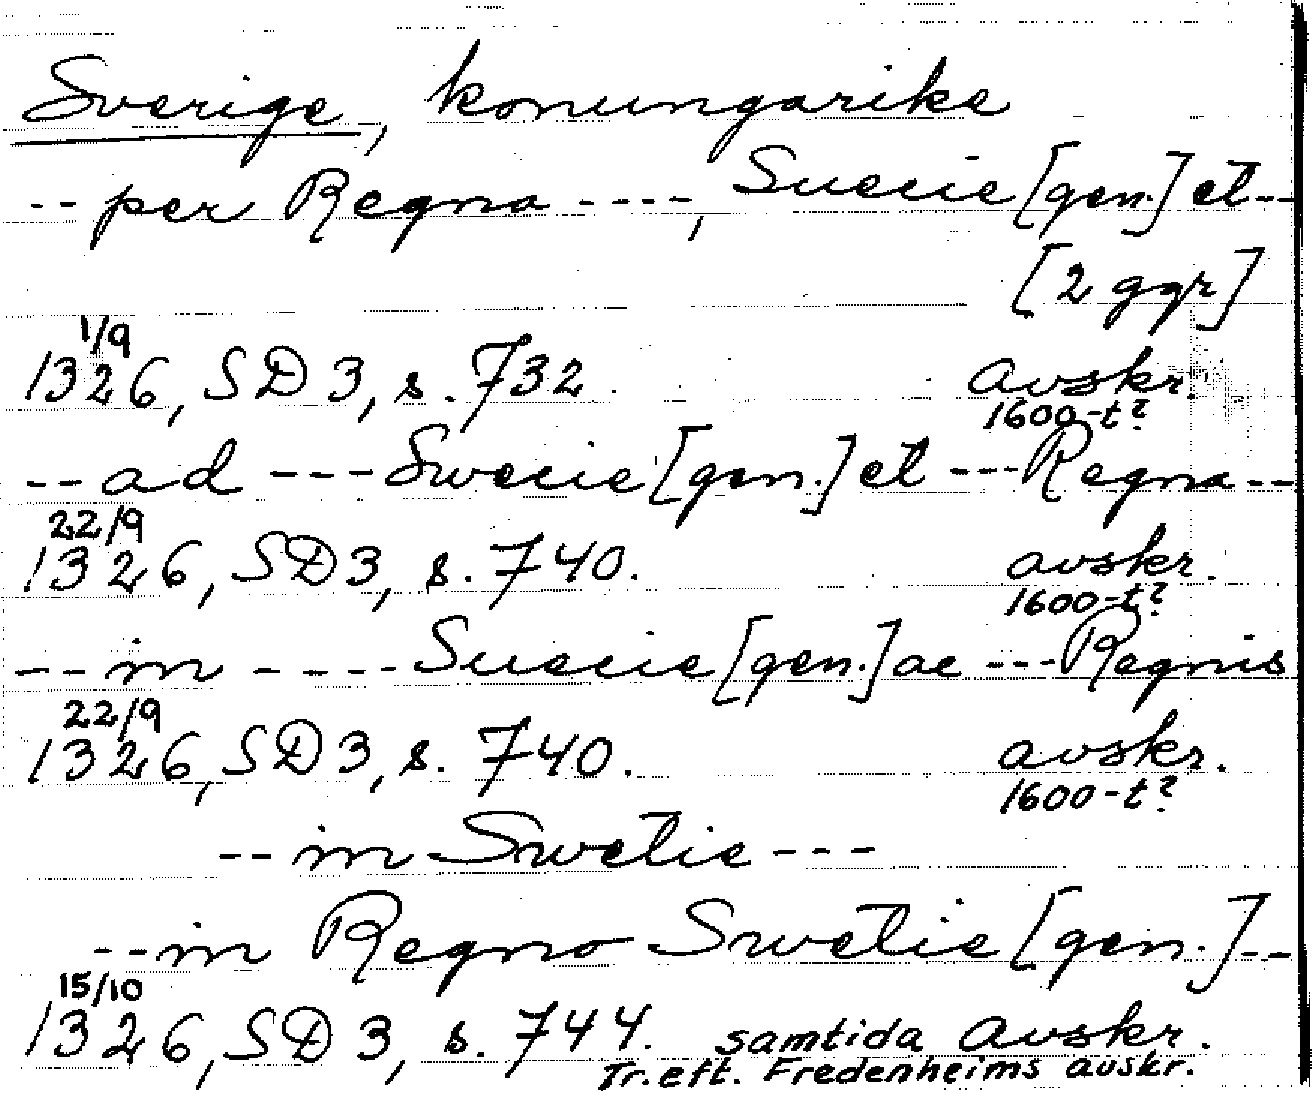 Sverige, konungarike
-- per Regna ----, Suecie [gen.] et --
[2 ggr]
1/9
1326, SD 3, s. 732. Avskr.
1600-t?
-- ad --- Swecie [gen.] et --- Regna --
22/9
1326, SD 3, s. 740. avskr.
1600-t?
-- in ---- Suecie [gen.] ac --- Regnis
22/9
1326, SD 3, s. 740. avskr.
1600-t?
-- in Swetie ---
-- in Regno Swetie [gen.] --
15/10
1326, SD 3, s. 744. samtida Avskr.
Tr. eft. Fredenheims avskr.